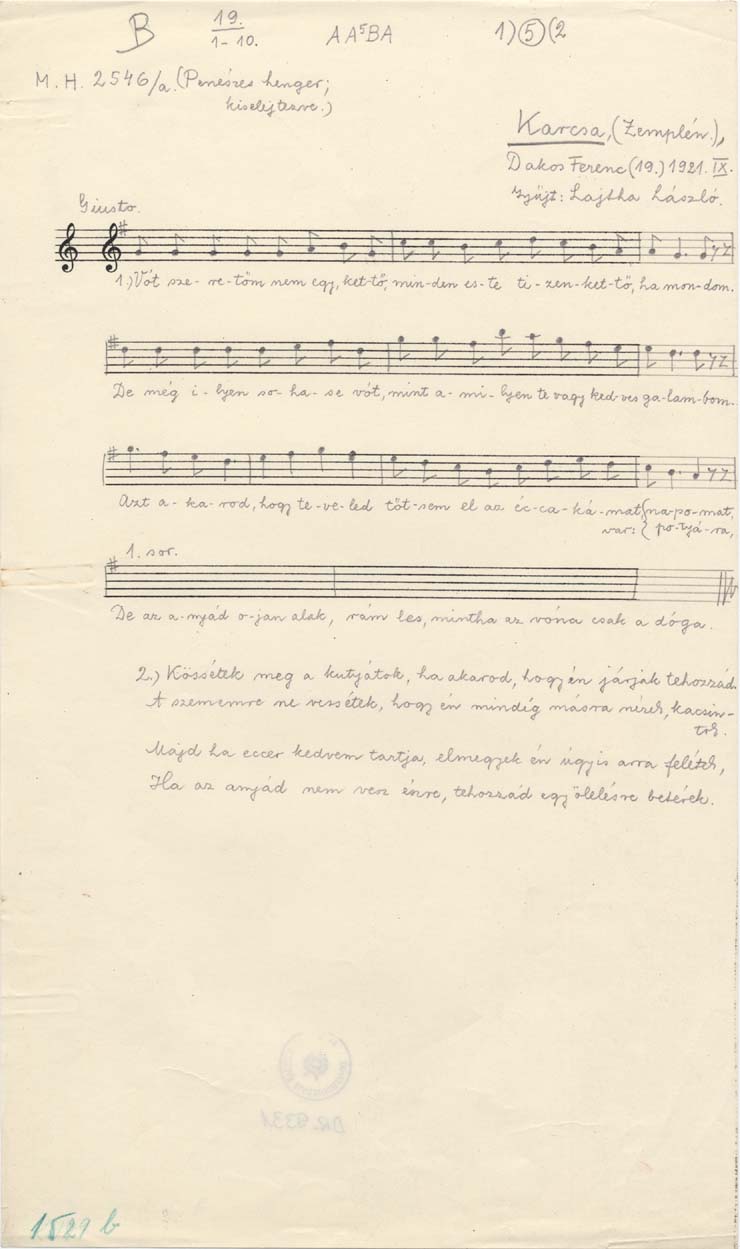 B 19. AA⁵BA 1)⑤(2
1-10.
M. H. 2546/a. (Penészes henger;
kiselejtezve.)
Karcsa, (Zemplén.),
Dakos Ferenc (19.) 1921. IX.
Gyűjt: Lajtha László.
Giusto.
1.) Vót sze-re-töm nem egy, ket-tő, min-den es-te ti-zen-ket-tő, ha mon-dom.
De még i-lyen so-ha-se vót, mint a-mi-lyen te vagy ked-ves ga-lam-bom.
Azt a-ka-rod, hogy te-ve-led tőt-sem el az éc-ca-ká-mat, {na-po-mat,
var: {po-tyá-ra,
1. sor.
De az a-nyád o-jan alak, rám les, mintha az vóna csak a dóga.
2.) Kössétek meg a kutyátok, ha akarod, hogy én járjak tehozzád.
A szememre ne vessétek, hogy én mindég másra nézek, kacsin-
tok.
Majd ha eccer kedvem tartja, elmegyek én úgyis arra felétek,
Ha az anyjád nem vesz észre, tehozzád egy ölelésre betérek.
DR. 9331
1529 b